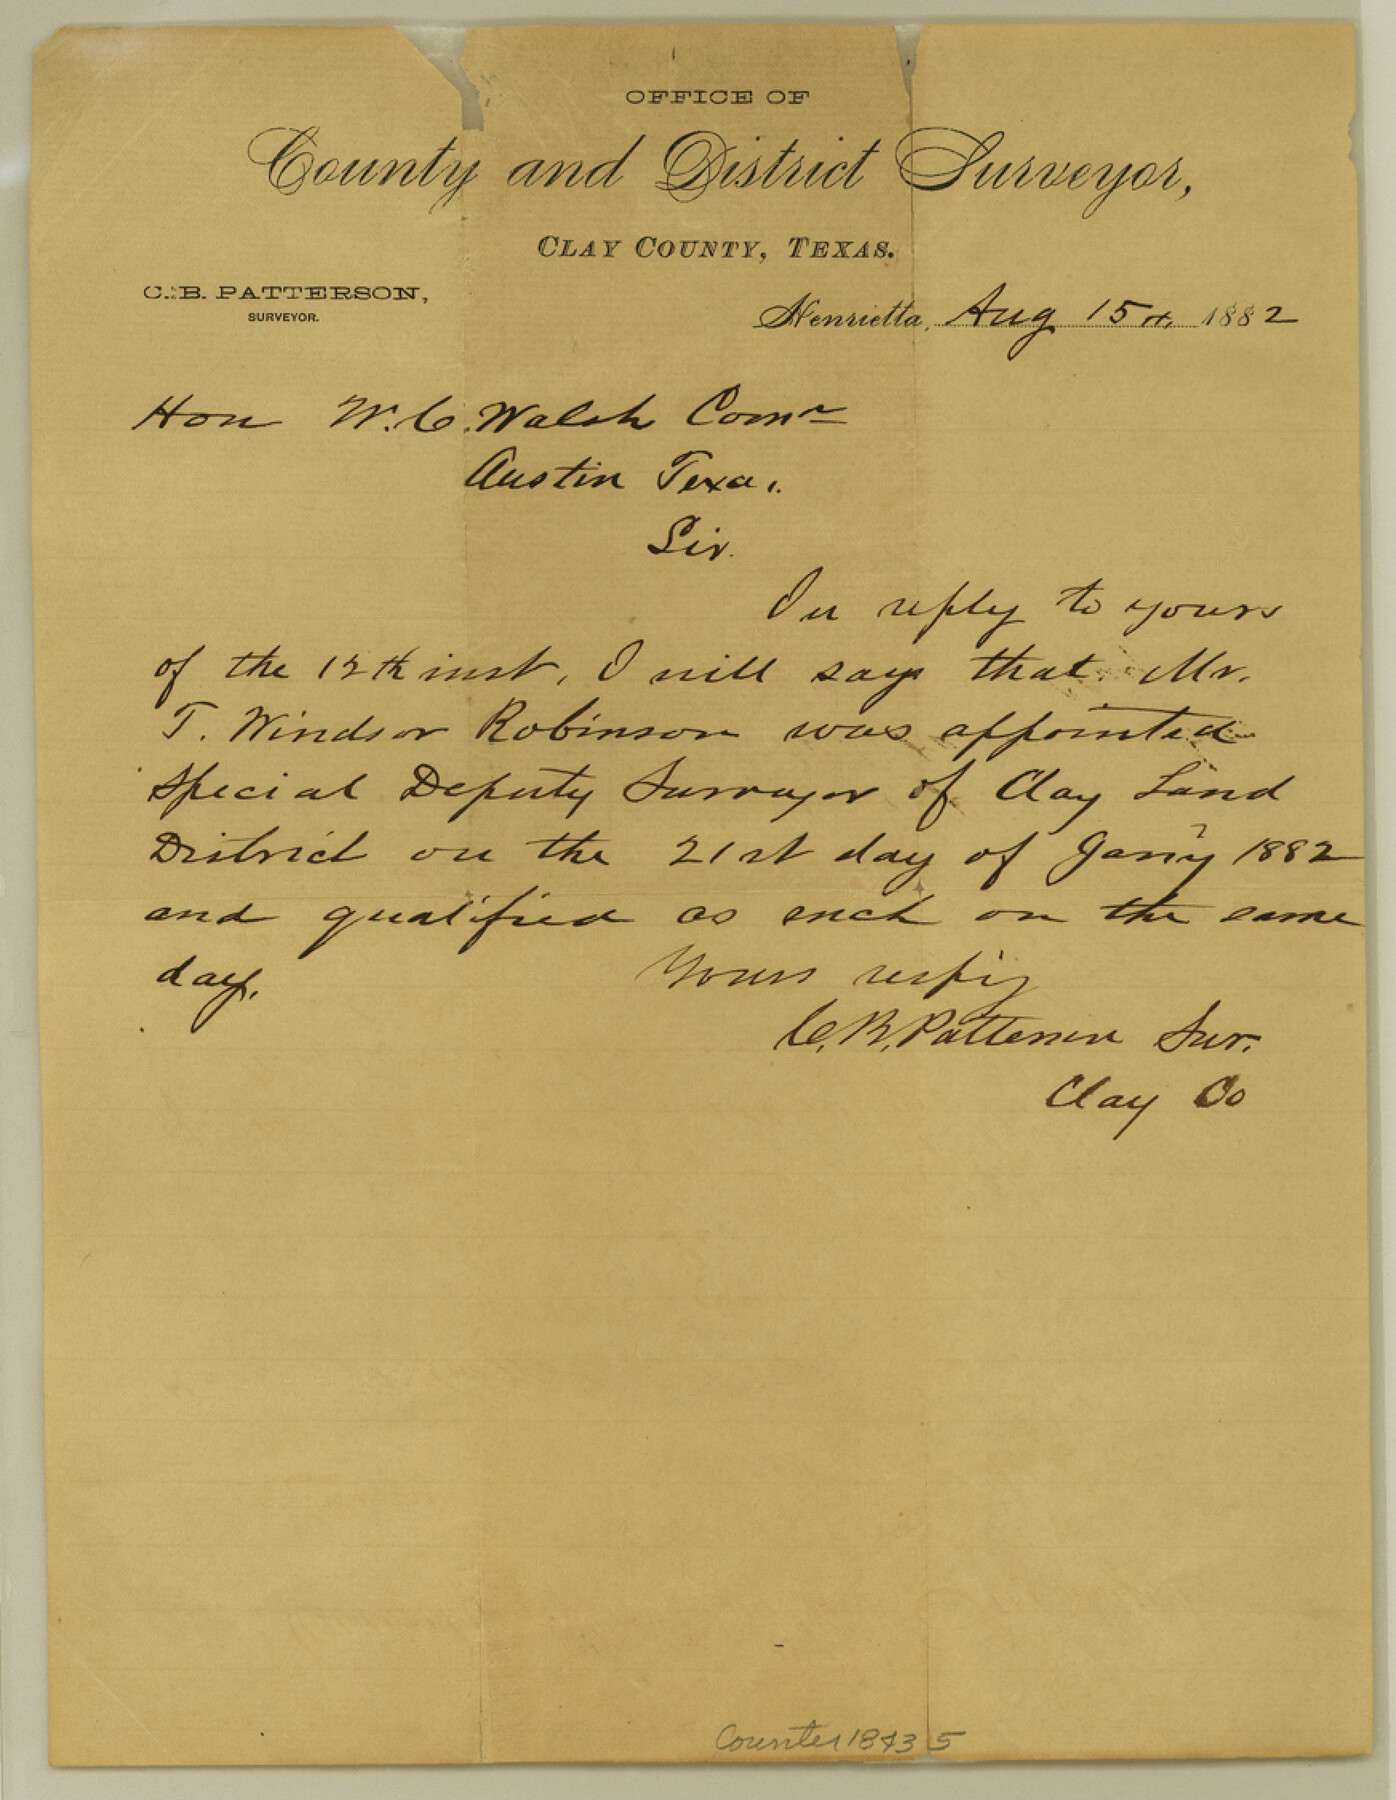 OFFICE OF
County and District Surveyor,
CLAY COUNTY, TEXAS.
C. B. PATTERSON,
SURVEYOR.
Henrietta, Aug 15th, 1882
Hon W. C. Walsh Comr
Austin Texas.
Sir.
In reply to yours
of the 12th inst, I will say that Mr.
T. Windsor Robinson was appointed
Special Deputy Surveyor of Clay Land
District on the 21st day of Jan'y 1882
and qualified as such on the same
day.
Yours respy
C. B. Patterson Sur.
Clay Co
Counter 18435